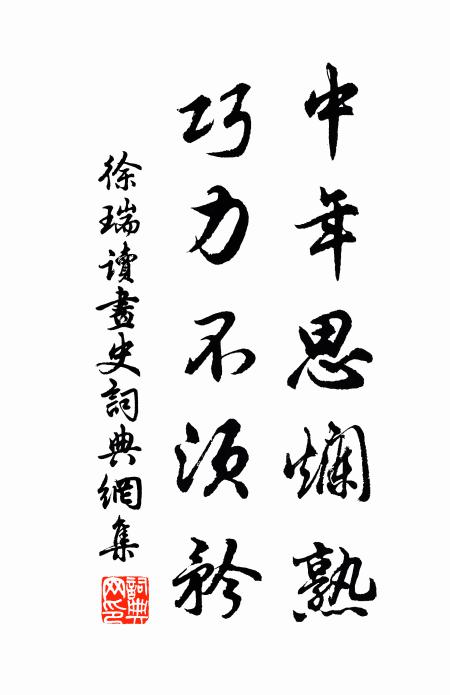 中年思爛熟
巧力不須矜
徐瑞讀畫史詞典網集
詞典網印